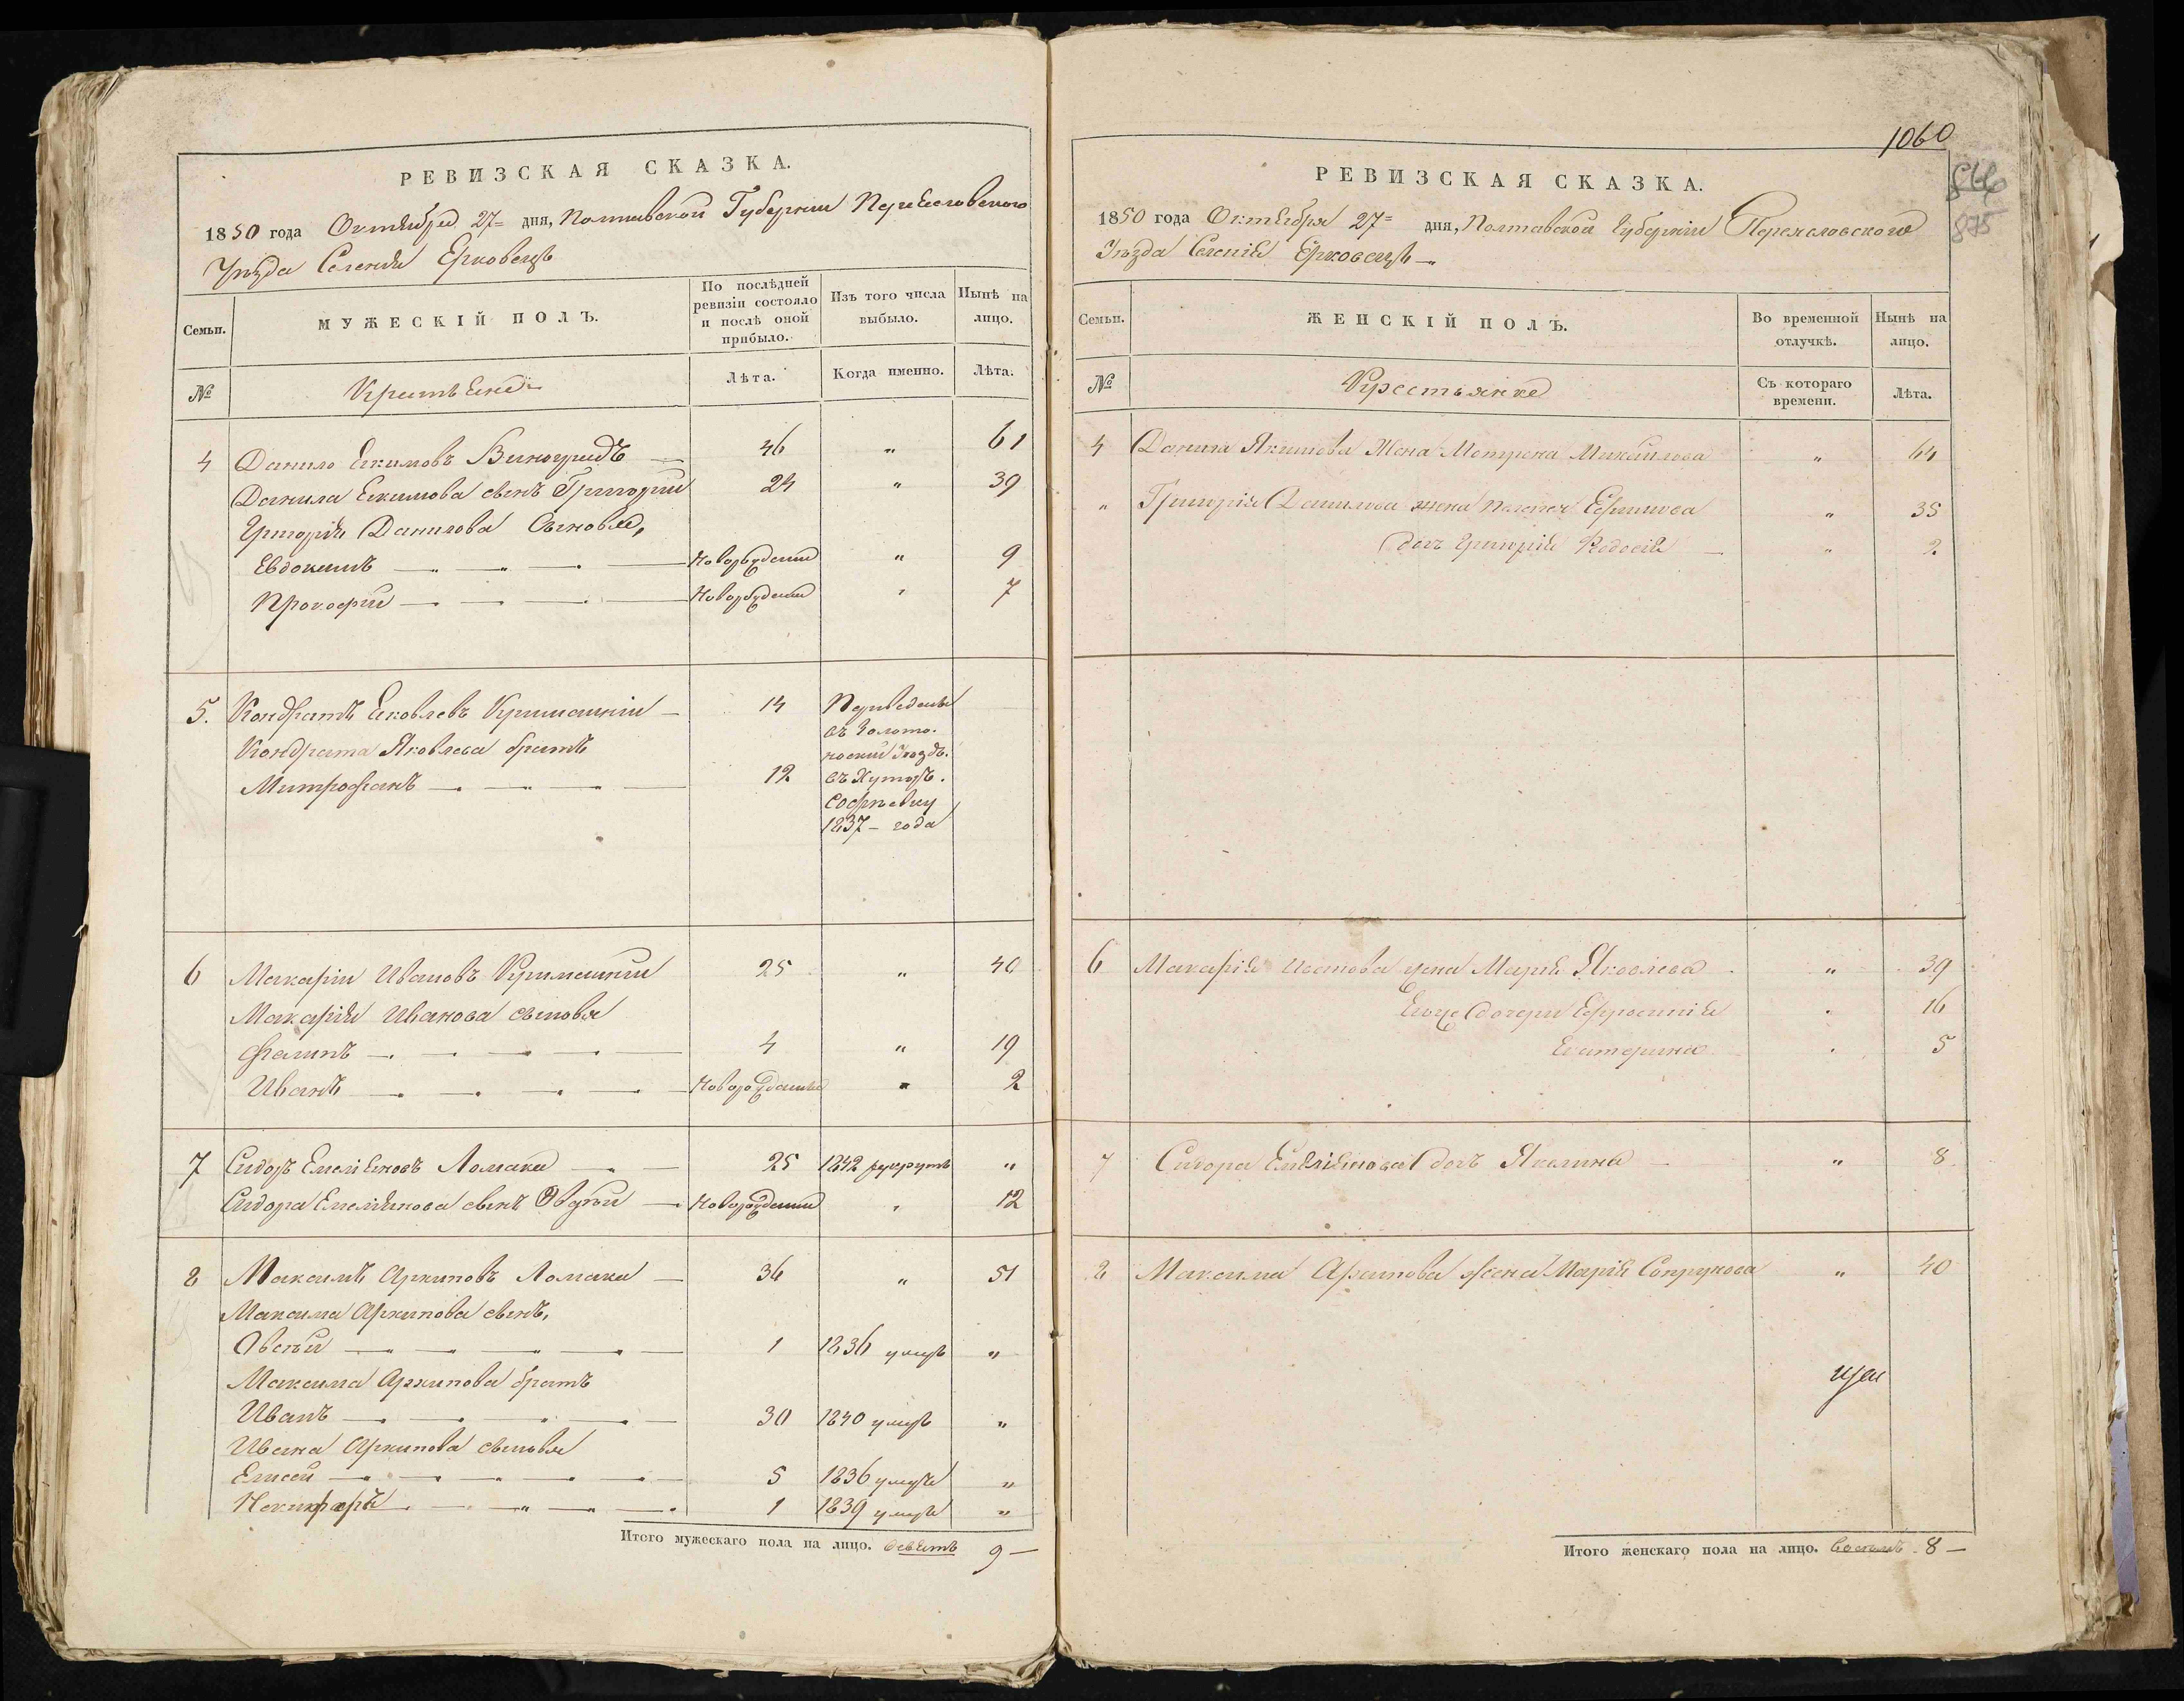 РЕВИЗСКАЯ СКАЗКА.
1850 года Октября 27 = дня, Полтавской Губернии Переяславского
Уезда Селения Ерковецъ
Семьи.
МУЖЕСКІЙ ПОЛЪ.
По послѣдней ревизіи состояло и послѣ оной прибыло.
Изъ того числа выбыло.
Нынѣ на лицо.
№
Крестьяне
Лѣта.
Когда именно.
Лѣта.
4 Данило Екимовъ Виноградъ — 46 „ 61
Данила Екимова сынъ Григорій 24 „ 39
Григорія Данилова Сыновья,
Евдокимъ — Новорожденный „ 9
Прокофій — Новорожденный „ 7
5. Кондратъ Яковлевъ — 14 Переведены
Кондрата Яковлева братъ въ Золото-
ноский Уездъ.
Митрофанъ — 12 въ Хуторъ.
Софіевку
1837 – года
6 Макарій Ивановъ 25 „ 40
Макарія Иванова сыновья
Филипъ — 4 „ 19
Иванъ — Новорожденный „ 2
7 Сидоръ Емеліяновъ Ломака — 25 1842 рекрутъ „
Сидора Емеліянова сынъ — Новорожденный „ 12
8 Максимъ Архиповъ Ломака — 36 „ 51
Максима Архипова сынъ,
Овсѣй — 1 1836 умеръ „
Максима Архипова братъ
Иванъ — 30 1840 умеръ „
Ивана Архипова сыновья
Елисей — 5 1836 умеръ „
Никифоръ — 1 1839 умеръ „
Итого мужескаго пола на лицо. девять 9 —
1060
875
РЕВИЗСКАЯ СКАЗКА.
1850 года Октября 27 = дня, Полтавской Губерніи Переяславского
Уезда Селенія Ерковецъ —
Семьи.
ЖЕНСКІЙ ПОЛЪ.
Во временной отлучкѣ.
Нынѣ на лицо.
№
Крестьянке
Съ котораго времени.
Лѣта.
4 Данила Якимова Жена Мотрона Михайлова „ 64
„ Григорія Данилова жена Ефимова „ 35
дочь Григорія Ѳедосія — „ 2
6 Макарія Иванова жена Марія Яковлева „ 39
Его дочери Ефросинія „ 16
Екатерина „ 5
7 Сидора Емеліянова дочь Акелина — „ 8
8 Максима Архипова жена Марія „ 40
Итого женскаго пола на лицо. восемь 8 —